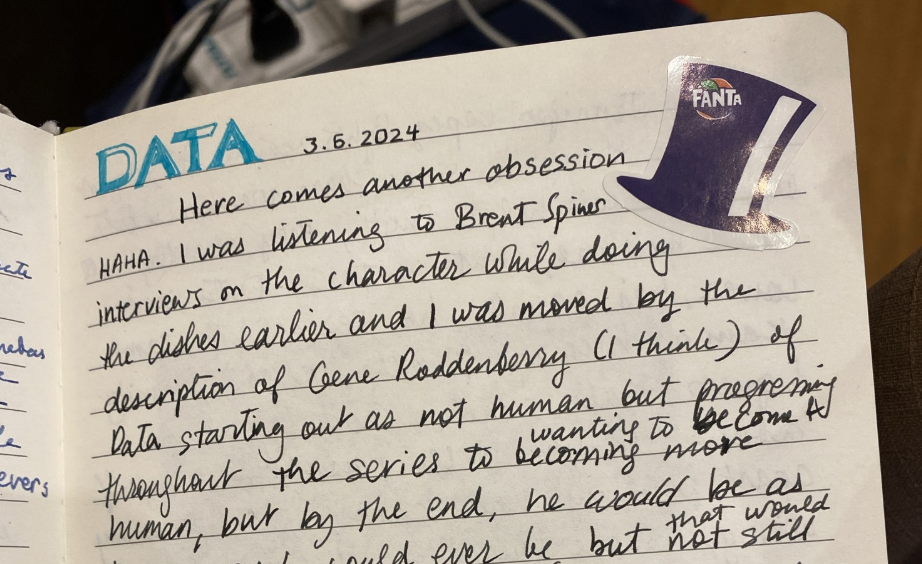 DATA 3.6.2024
FANTA
Here comes another obsession
HAHA. I was listening to Brent Spiner
interviews on the character while doing
the dishes earlier and I was moved by the
description of Gene Roddenberry (I think) of
Data starting out as not human but progressing
wanting to become
throughout the series to becoming more
human, but by the end, he would be as
that would
would ever be but not still
evers